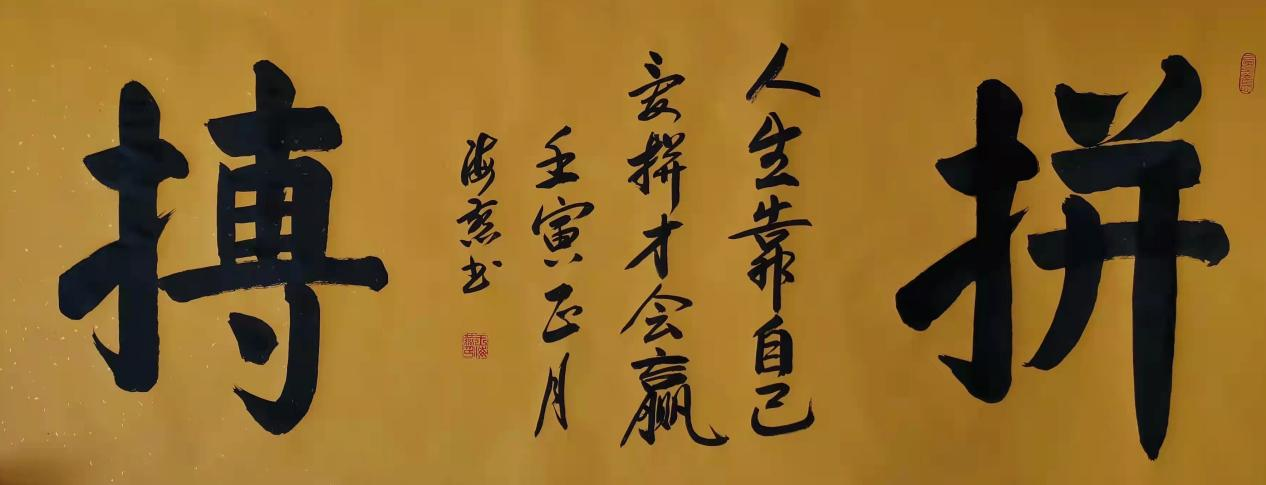 拼
人生靠自己
爱拼才会赢
壬寅正月
海燕书
搏